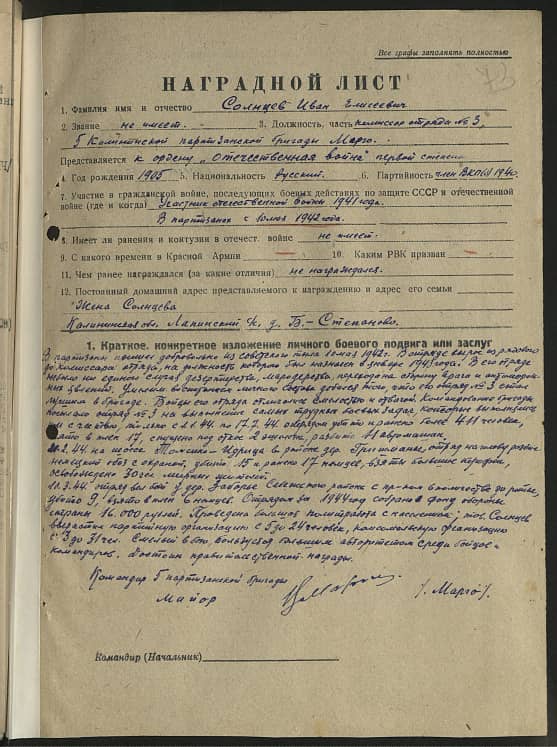 Все графы заполнять полностью
НАГРАДНОЙ ЛИСТ
1. Фамилия имя и отчество Солнцев Иван Елисеевич
2. Звание не имеет. 3. Должность, часть комиссар отряда № 3,
5 Калининской партизанской бригады Марго.
Представляется к ордену „Отечественная война" первой степени
4. Год рождения 1905 5. Национальность Русский. 6. Партийность член ВКП(б) 1940.
7. Участие в гражданской войне, последующих боевых действиях по защите СССР и отечественной
войне (где и когда) Участник отечественной войны 1941 года.
В партизанах с 10 мая 1942 года.
8. Имеет ли ранения и контузии в отечест. войне не имеет.
9. С какого времени в Красной Армии 10. Каким РВК призван
11. Чем ранее награждался (за какие отличия) не награждался.
12. Постоянный домашний адрес представляемого к награждению и адрес его семьи
Жена Солнцева
Калининская обл. д. Б-Степаново.
1. Краткое, конкретное изложение личного боевого подвига или заслуг
В партизаны пошел добровольно из советского тыла 10 мая 1942г. В отряде вырос из рядового
до комиссара отряда, на должность которого был назначен в январе года. В его отряде
не было ни единого случая дезертирства, мародерства, перехода на сторону врага и
явлений. личного состава добился того, что его отряд № 3 стал
лучшим в бригаде. Бойцы его отряда отличались смелостью и отвагой. Командование бригады
посылало отряд № 3 на выполнение самых трудных боевых задач, которые выполнялись
им с честью, только с 1.1.44 по 17.7.44 отрядом убито и ранено более 411 человек,
взято в плен 17, спущено под откос 2 эшелона, разбито 11 автомашин.
.2.44 на шоссе Идрица в районе дер. отряд разбил
немецкий обоз с охраной, убито 15 и ранено 17 немцев, взяты большие трофеи
освобождено мирных жителей.
.3.44. отряд вел бой у дер. Заборье района с пр-ком в количестве до роты,
убито 9, взято в плен 6 немцев. Отрядом за 1944 год собрано в фонд обороны
страны 16.000 рублей. Проведена большая политработа с населением; тов. Солнцев
вырастил партийную организацию с 5 до 24 человек, комсомольскую организацию
с 3 до 31 чел. Смелый в бою, пользуется большим авторитетом среди бойцов и
командиров. Достоин правительственной награды.
Командир 5 партизанской бригады
Майор /Марго/.
Командир (Начальник)